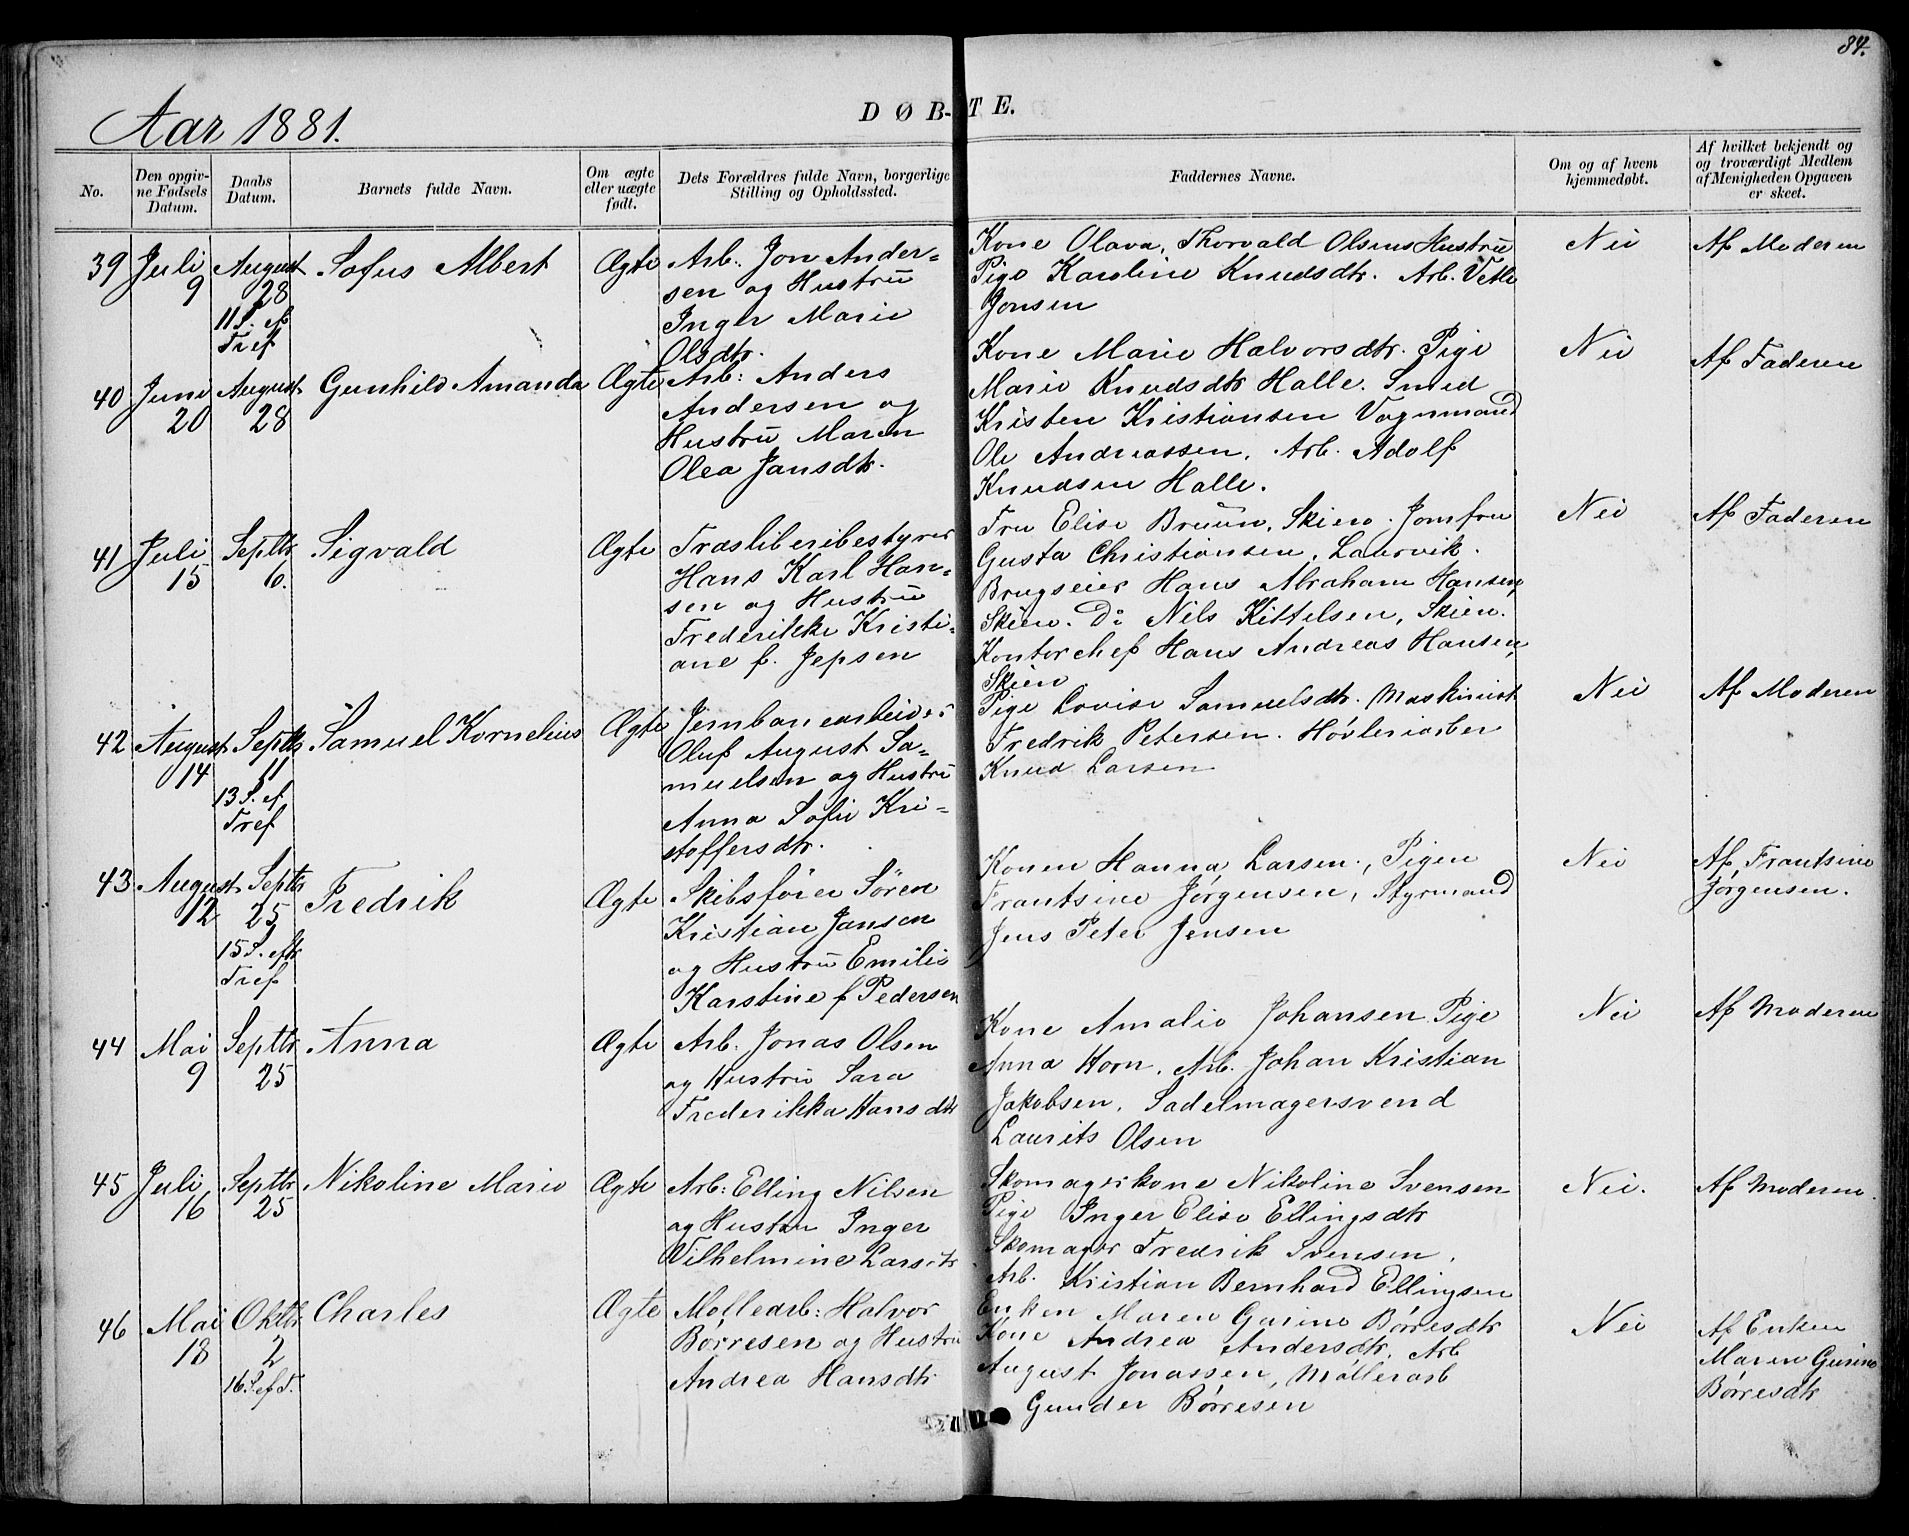 84.
Aar 1881.
DØB-TE.
No.
Den opgiv-
ne Fødsels
Datum.
Daabs
Datum.
Barnets fulde Navn.
Om ægte
eller uægte
født.
Dets Forældres fulde Navn, borgerlige
Stilling og Opholdssted.
Faddernes Navne.
Om og af hvem
hjemmedøbt.
Af hvilket bekjendt og
og troværdigt Medlem
af Menigheden Opgaven
er skeet.
39 Juli 9
August 28
11 S. ef
Tref
Sofus Albert
Ægte
Arb. Jon Ander-
sen og Hustru
Inger Marie
Olsdtr.
Kone Olava, Thorvald Olsens Hustru
Pige Karoline Knudsdtr. Arb. Vetle
Jonsen
Nei
Af Moderen
40 Juni 20
August 28
Gunhild Amanda
Ægte
Arb: Anders
Andersen og
Hustru Maren
Olea Jansdtr.
Kone Marie Halvorsdtr. Pige
Marie Knudsdtr Halle. Smed
Kristen Kristiansen Vognmand
Ole Andreassen, Arb. Adolf
Knudsen Halle.
Nei
Af Faderen
41 Juli 15
Septbr 6.
Sigvald
Ægte
Træsliberibestyrer
Hans Karl Han-
sen og Hustru
Frederikke Kristi-
ane f. Jepsen
Fru Elise Bruun, Skien. Jomfru
Gusta Christiansen, Laurvik.
Brugseier Hans Abraham Hansen,
Skien. Do Nils Kittelsen, Skien.
Kontorchef Hans Andreas Hansen,
Skien
Nei
Af Faderen
42 August 14
Septbr 11
13 S. ef.
Tref
Samuel Kornelius
Ægte
Jernbanearbeider
Oluf August Sa-
muelsen og Hustru
Anna Sofie Kri-
stoffersdtr.
Pige Lovise Samuelsdtr. Maskinist
Fredrik Petersen. Høvleriarber
Knud Larsen
Nei
Af Moderen
43 August 12
Septbr 25
15 S. eftr
Tref
Fredrik
Ægte
Skibsfører Søren
Kristian Jansen
og Hustru Emilie
Karstine f Pedersen
Konen Hanna Larsen, Pigen
Frantsine Jørgensen, Styrmand
Jens Peter Jensen
Nei
Af Frantsine
Jørgensen.
44 Mai 9
Septbr 25
Anna
Ægte
Arb. Jonas Olsen
og Hustru Sara
Frederikka Hansdtr
Kone Amalie Johansen Pige
Anna Horn, Arb. Johan Kristian
Jakobsen, Sadelmagersvend
Laurits Olsen
Nei
Af Moderen
45 Juli 16
Septbr 25
Nikoline Marie
Ægte
Arb: Elling Nilsen
og Hustru Inger
Vilhelmine Larsdtr
Skomagerkone Nikoline Svensen
Pige Inger Elise Ellingsdtr
Skomager Fredrik Svensen,
Arb. Kristian Bernhard Ellingsen
Nei.
Af Moderen.
46 Mai 18
Oktbr 2
16 S. ef T.
Charles
Ægte
Møllearb: Halvor
Børresen og Hustru
Andrea Hansdtr
Enken Maren Gurine Børresdtr
Kone Andrea Andersdtr, Arb
August Jonassen, Møllerarb
Gunder Børresen
Nei
Af Enken
Maren Gurine
Børresdtr